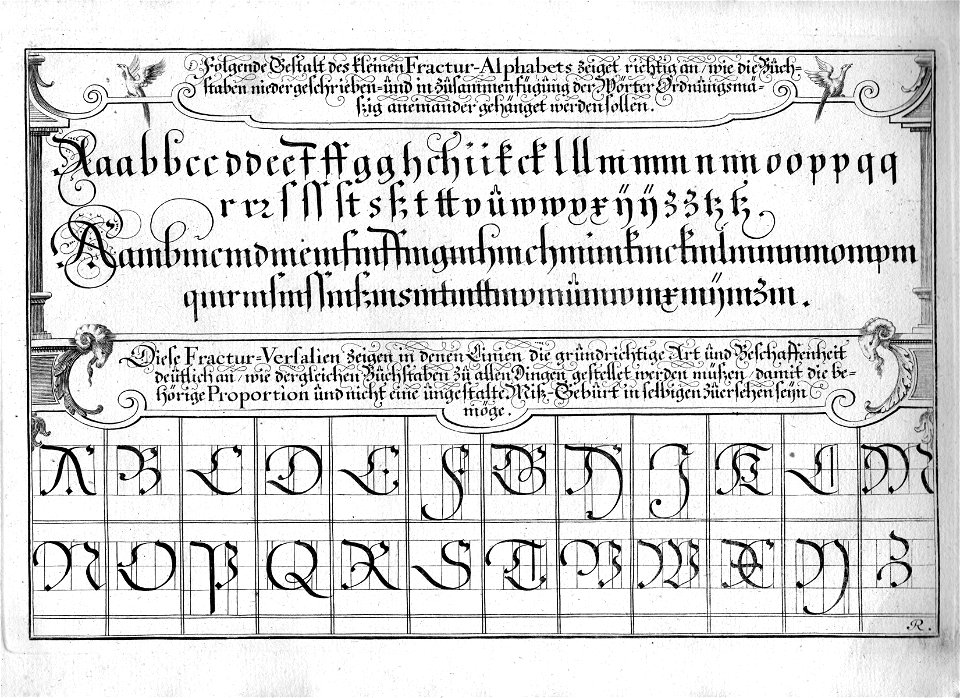 Folgende Gestalt des kleinen Fractur-Alphabets zeiget richtig an, wie die Buch-
staben niedergeschrieben- und in zusammenfügung der Wörter Ordnungsmä-
ßig aneinander gehänget werden sollen.
A a a b b c c d d e e f f ff g g h ch i i k ck l ll m m m n n n o o p p q q
r r r ſ ſſ ſt s ß t tt v ů w w y x ÿ ÿ z z tz tz.
A anbncndnenfnffngnhnchninkncknlnmnnonpn
qnrnſnſſnßnsntnttnvnůnwnxnÿnzn.
Diese Fractur-Versalien zeigen in denen Linien die grundrichtige Art und Beschaffenheit
deutlich an, wie dergleichen Buchstaben zu allen Dingen gestellet werden müßen, damit die be-
hörige Proportion und nicht eine ungestalte Miß-Geburt in selbigen zuersehen seyn
möge.
A B C D E F G H I K L M
N O P Q R S T V W X Y Z
R.